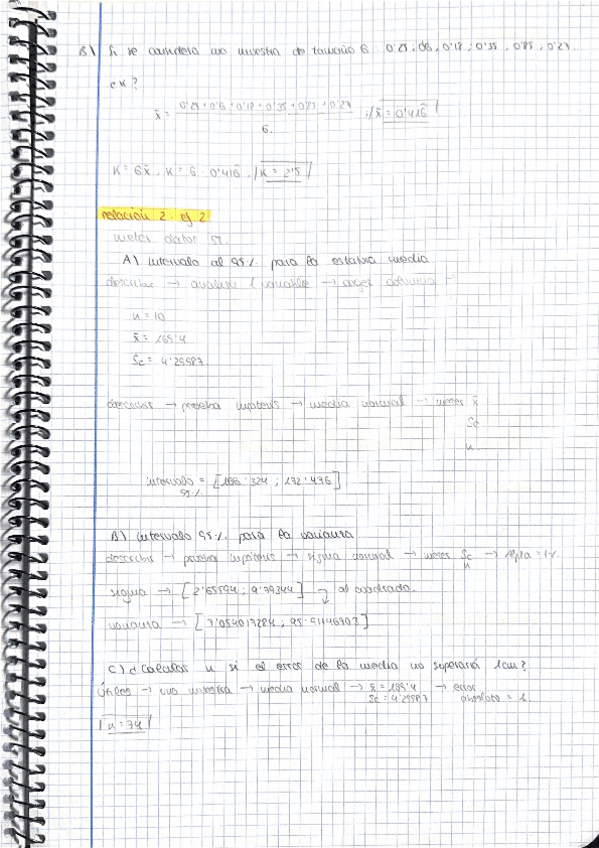 B) Si se considera una muestra de tamaño 6 0'29, 06, 0'18, 0'35, 0'85, 0'27.
¿K?
x̄ = 0'29 + 0'6 + 0'18 + 0'35 + 0'85 + 0'27 / 6. ; / x̄ = 0'416̂ /
K = 6x̄, K = 6 · 0'416̂, / K = 2'5 /
relación 2. ej 2
meter datos St.
A) intervalo al 95% para la estatura media
describir → analisis 1 variable → coger columna
n = 10
x̄ = 169'4
Sc = 4'29987
describir → prueba hipótesis → media normal → meter x̄
Sc
n.
intervalo 95% = [166'324 ; 172'476]
B) intervalo 95% para la varianza
describir → prueba hipótesis → sigma normal → meter Sc → Alpha = 1%.
n
sigma → [2'65594 ; 9'79344] al cuadrado.
varianza → [7'054017284 ; 95'91146703]
C) ¿Calcular n si el error de la media no superará 1cm?
Útiles → una muestra → media normal → x̄ = 169'4 → error
Sc = 4'29987 absoluto = 1.
/ n = 74 /